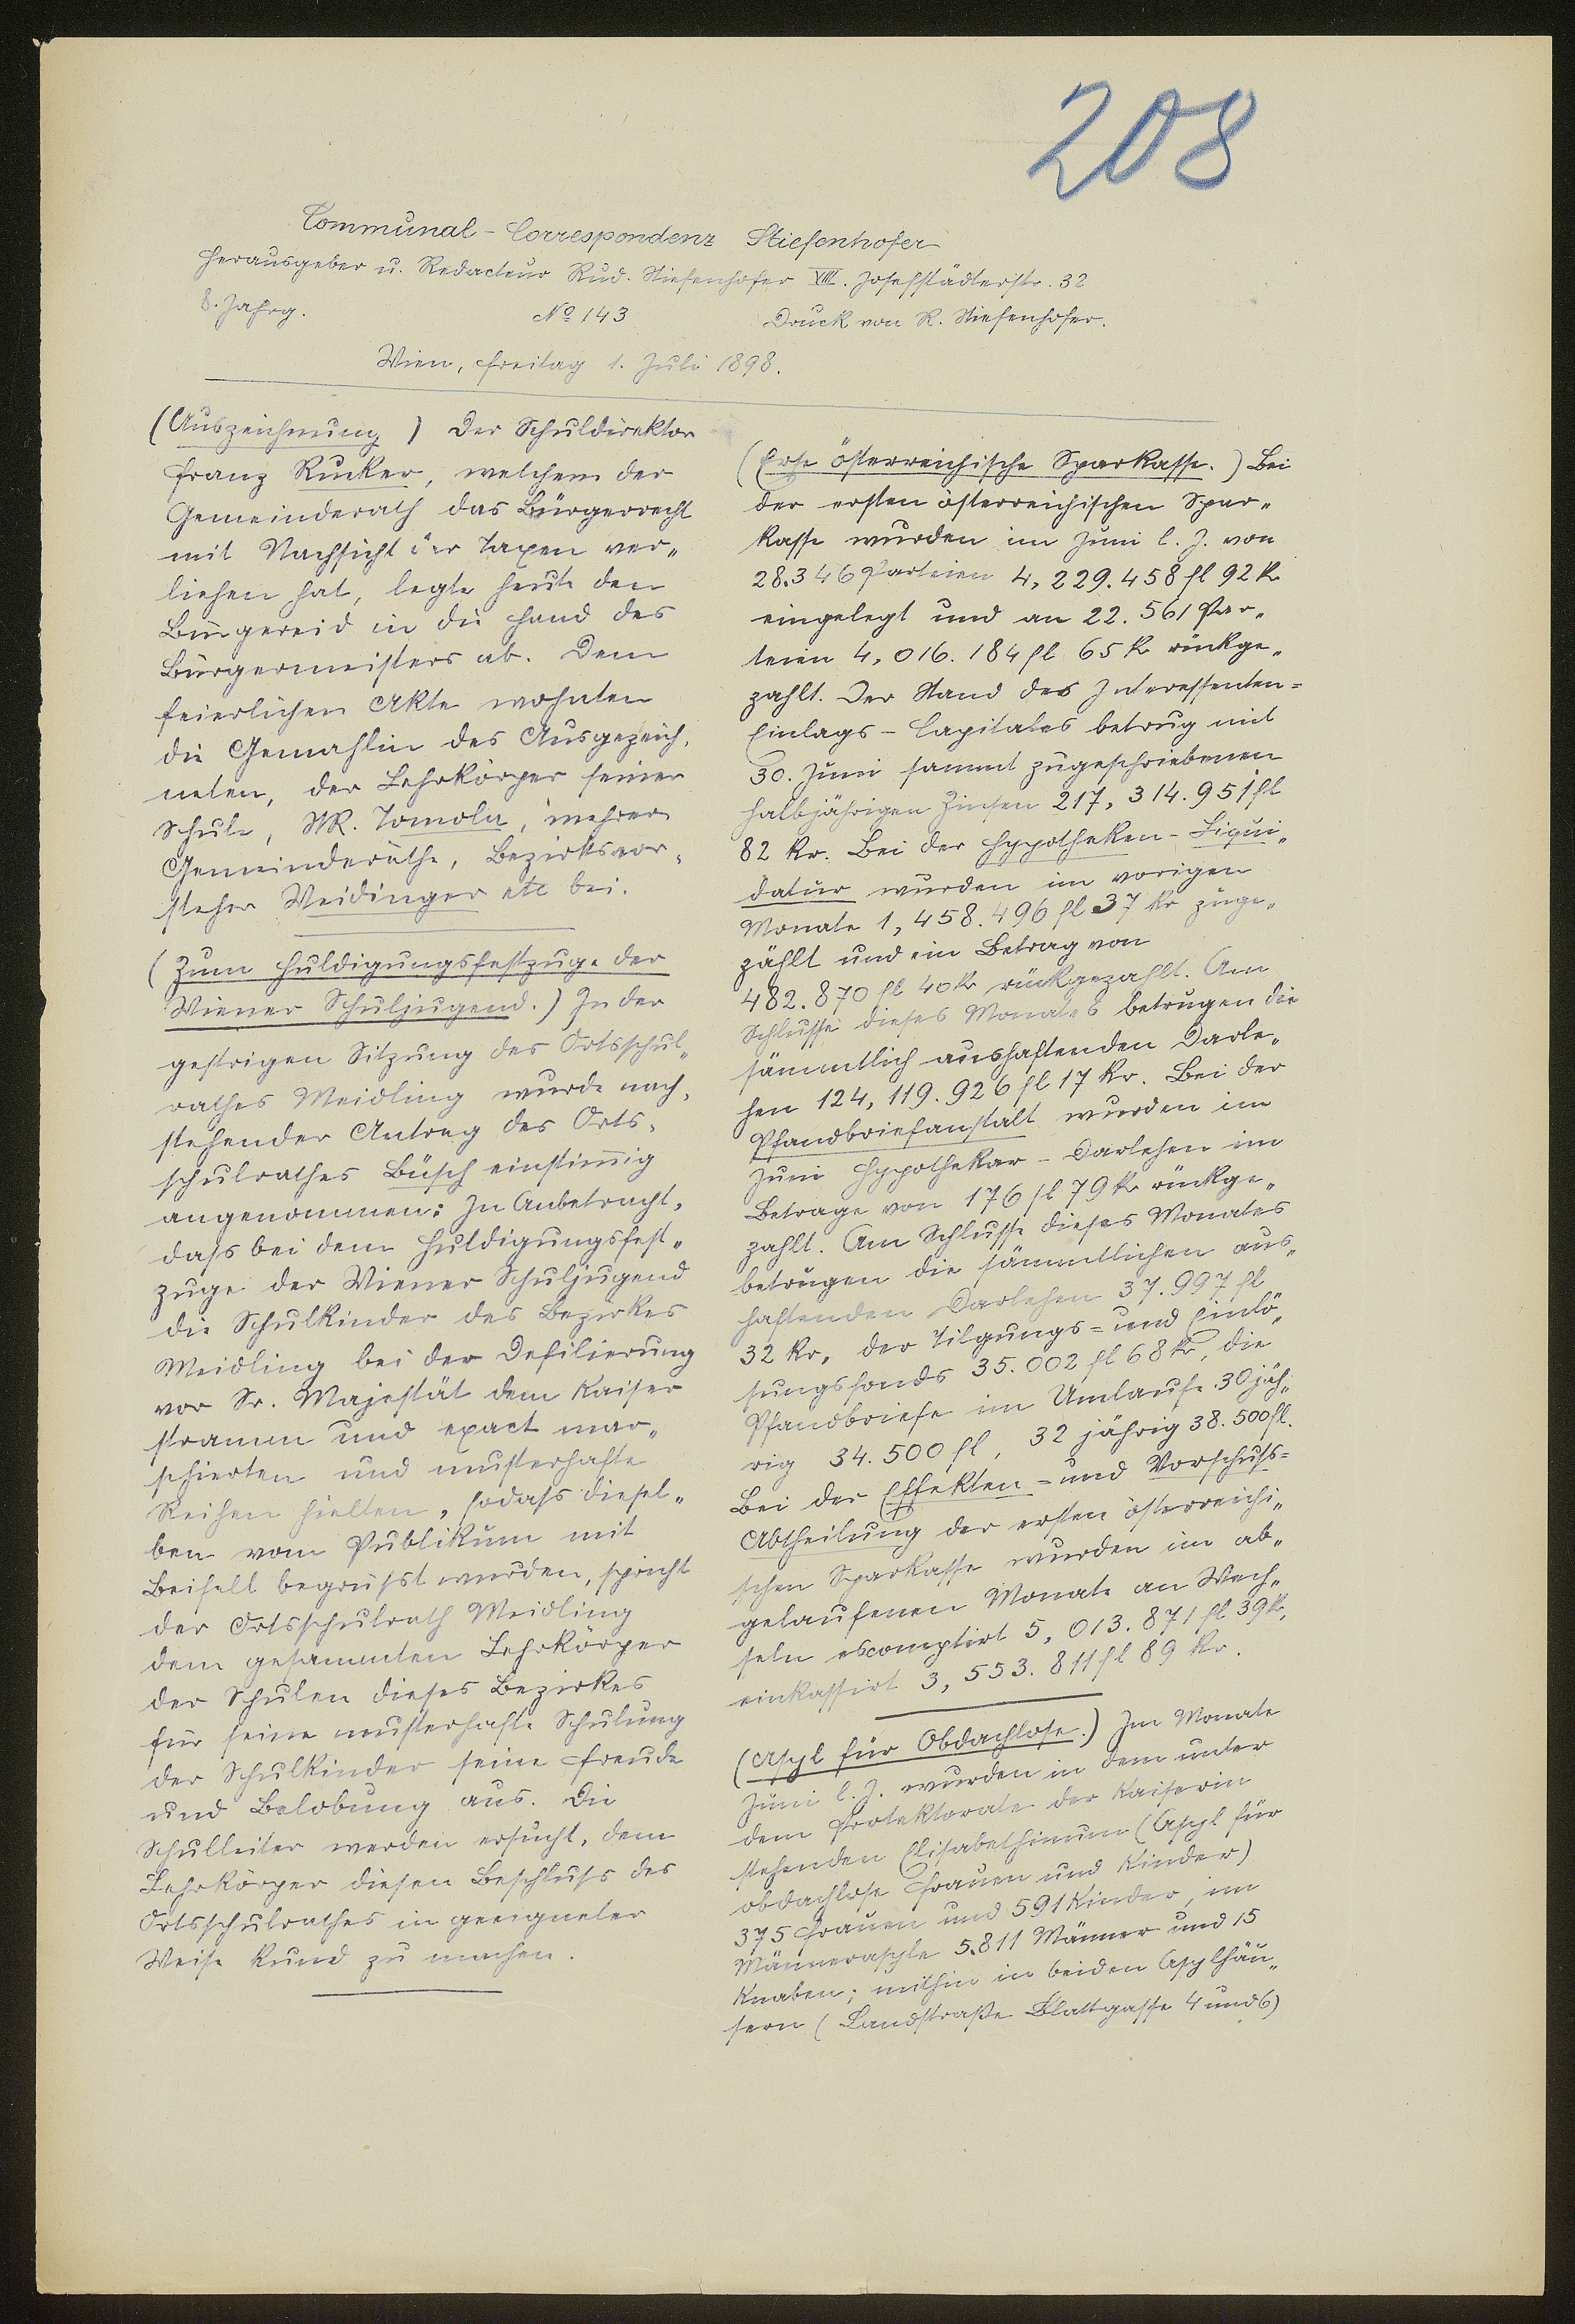 208
Communal-Correspondenz Stiefenhofer
Herausgeber u. Redacteur Rud. Stiefenhofer VIII. Josefstädterstr. 32
8. Jahrg. No 143 Druck von R. Stiefenhofer.
Wien, Freitag 1. Juli 1898.
(Auszeichnung) Der Schuldirektor
Franz Rucker, welchem der
Gemeinderath das Bürgerrecht
mit Nachsicht der Taxen ver„
liehen hat, legte heute den
Bürgereid in die Hand des
Bürgermeisters ab. Dem
feierlichen Akte wohnten
die Gemahlin des Ausgezeich„
neten, der Lehrkörper seiner
Schule, StR. Tomola, mehrere
Gemeinderäthe, Bezirksvor„
steher Weidinger etc bei.
(Zum Huldigungsfestzuge der
Wiener Schuljugend.) In der
gestrigen Sitzung des Ortsschul„
rathes Meidling wurde nach„
stehender Antrag des Orts„
schulrathes Büsch einstimmig
angenommen: In Anbetracht,
dass bei dem Huldigungsfest„
zuge der Wiener Schuljugend
die Schulkinder des Bezirkes
Meidling bei der Defilierung
vor Sr. Majestät dem Kaiser
stramm und exact mar„
schierten und musterhafte
Reihen hielten, sodass diesel„
ben vom Publikum mit
Beifall begrüsst wurden, spricht
der Ortsschulrath Meidling
dem gesammten Lehrkörper
der Schulen dieses Bezirkes
für seine musterhafte Schulung
der Schulkinder seine Freude
und Belobung aus. Die
Schulleiter werden ersucht, dem
Lehrkörper diesen Beschluss des
Ortsschulrathes in geeigneter
Weise kund zu machen.
(Erste österreichische Sparkasse.) Bei
der ersten österreichischen Spar„
kasse wurden im Juni l. J. von
28.346 Parteien 4,229.458 fl 92 kr
eingelegt und an 22.561 Par„
teien 4,016.184 fl 65 kr rückge„
zahlt. Der Stand des Interessenten=
Einlags-Capitales betrug mit
30. Juni sammt zugeschriebenen
halbjährigen Zinsen 217,314.951 fl
82 kr. Bei der Hypotheken-Liqui„
datur wurden im vorigen
Monate 1,458.496 fl 37 kr zuge„
zählt und ein Betrag von
482.870 fl 40 kr rückgezahlt. Am
Schlusse dieses Monates betrugen die
sämmtlich aushaftenden Darle„
hen 124,119.926 fl 17 kr. Bei der
Pfandbriefanstalt wurden im
Juni Hypothekar-Darlehen im
Betrage von 176 fl 79 kr rückge„
zahlt. Am Schlusse dieses Monates
betrugen die sämmtlichen aus„
haftenden Darlehen 37.997 fl
32 kr, der Tilgungs= und Einlö„
sungsfonds 35.002 fl 68 kr, die
Pfandbriefe im Umlaufe 30jäh„
rig 34.500 fl, 32 jährig 38.500 fl.
Bei der Effekten= und Vorschuss=
Abtheilung der ersten österreichi„
schen Sparkasse wurden im ab„
gelaufenen Monate an Wech„
seln escomptirt 5,013.871 fl 39 kr,
einkassirt 3,553.811 fl 89 kr.
(Asyl für Obdachlose.) Im Monate
Juni l. J. wurden in dem unter
dem Protektorate der Kaiserin
stehenden Elisabethinum (Asyl für
obdachlose Frauen und Kinder)
375 Frauen und 591 Kinder, im
Männerasyle 5.811 Männer und 15
Knaben; mithin in beiden Asylhäu„
sern (Landstraße Blattgasse 4 und 6)